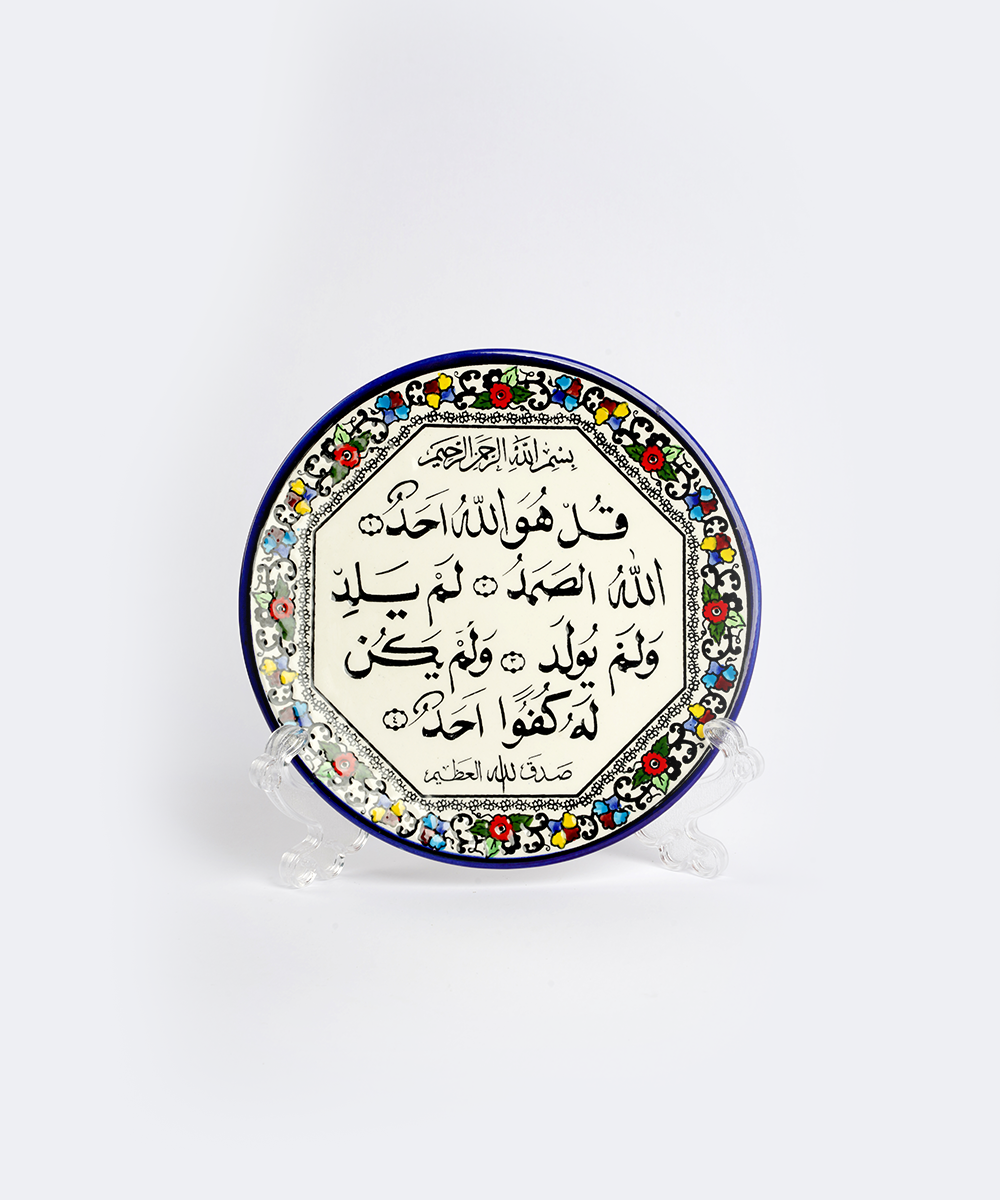 بِسْمِ اللَّهِ الرَّحْمَنِ الرَّحِيمِ
قُلْ هُوَ اللَّهُ اَحَدٌ ١
اللَّهُ الصَمَدُ ٢ لَمْ يَلِدْ
وَلَمْ يُولَدْ ٣ وَلَمْ يَكُنْ
لَهُ كُفُوًا اَحَدٌ ٤
صَدَقَ الله العَظِيم